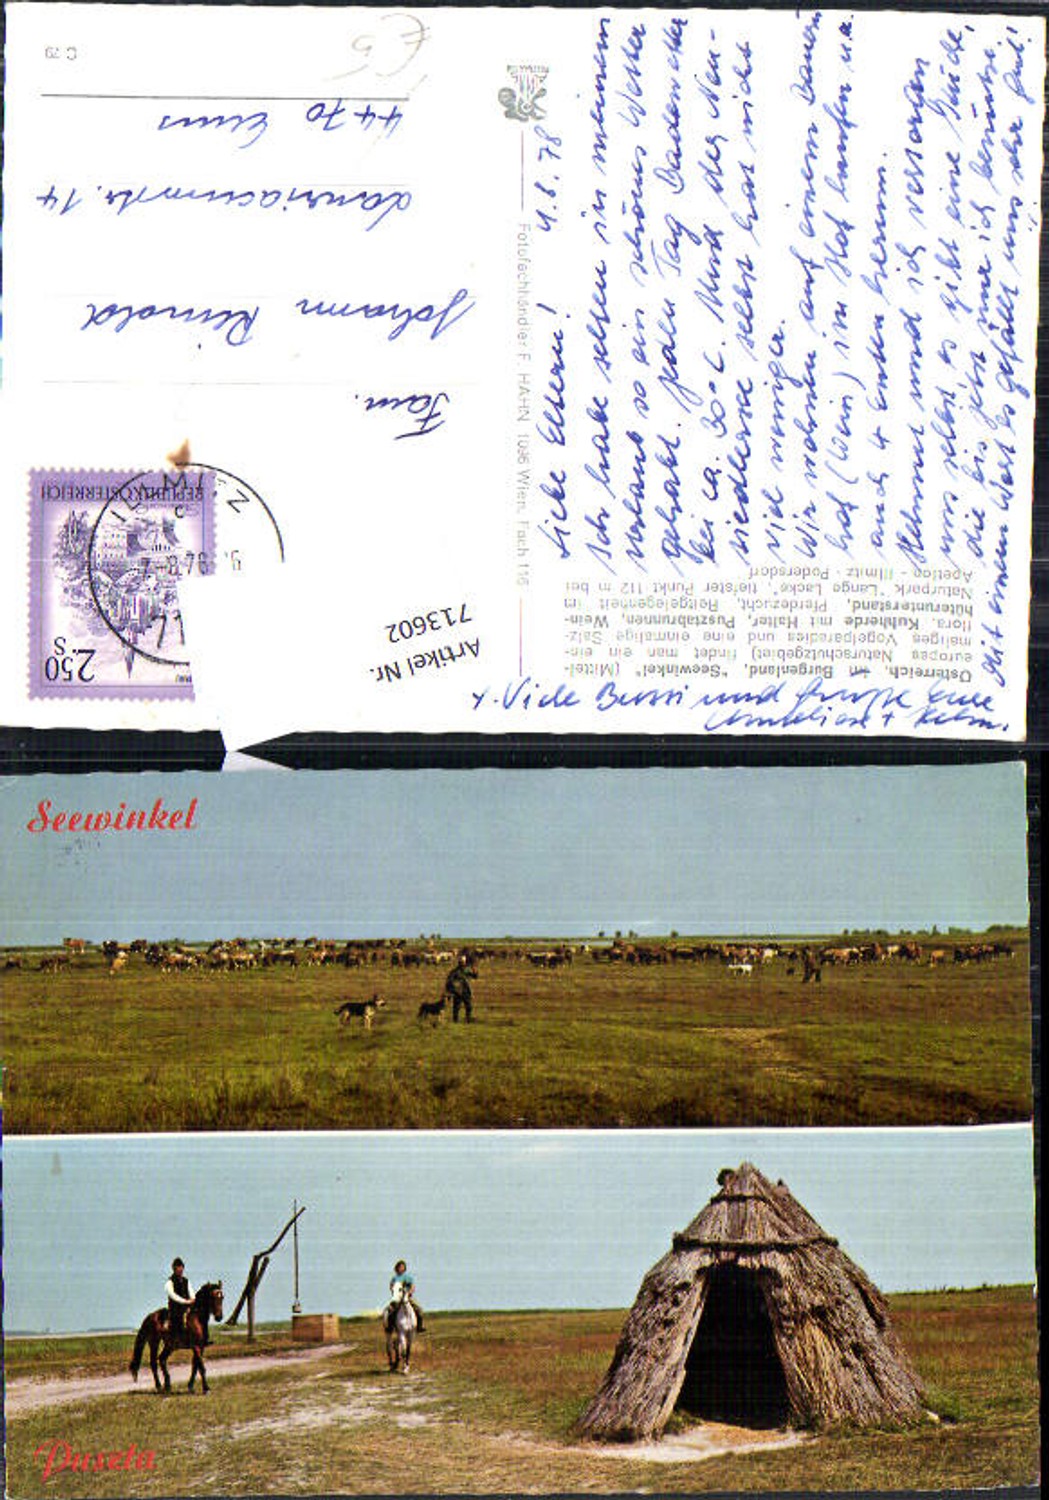 C 79
4470 Enns
Lauriacumstr. 14
Johann
Fam.
REPUBLIK ÖSTERREICH
2.50 S
Artikel Nr.
713602
Fotofachhändler F. HAHN 1096 Wien, Fach 116
4.8.78
Liebe Eltern!
Ich habe selten in meinem
Urlaub so ein schönes Wetter
gehabt. Jeden Tag Badewetter
bei ca. 30°C. Und der Neu-
siedlersee selbst hat nicht
viel weniger.
Wir wohnen auf einem Bauern
hof (Wein) im Hof laufen u.a.
auch 4 Enten herum.
Helmut und ich versorgen
uns selbst, es gibt eine Küche,
die bis jetzt nur ich benütze.
Mit einem Wort es gefällt uns sehr gut!
+ Viele Bussi und Grüße Eure
+ Helm.
Österreich, Burgenland, "Seewinkel" (Mittel-
europas Naturschutzgebiet) findet man ein ein-
maliges Vogelparadies und eine einmalige Salz-
flora. Kuhherde mit Halter, Pusztabrunnen, Wein-
hüterunterstand, Pferdezucht, Reitgelegenheit im
Naturpark "Lange Lacke", tiefster Punkt 112 m bei
Apetlon - Illmitz - Podersdorf
Seewinkel
Puszta